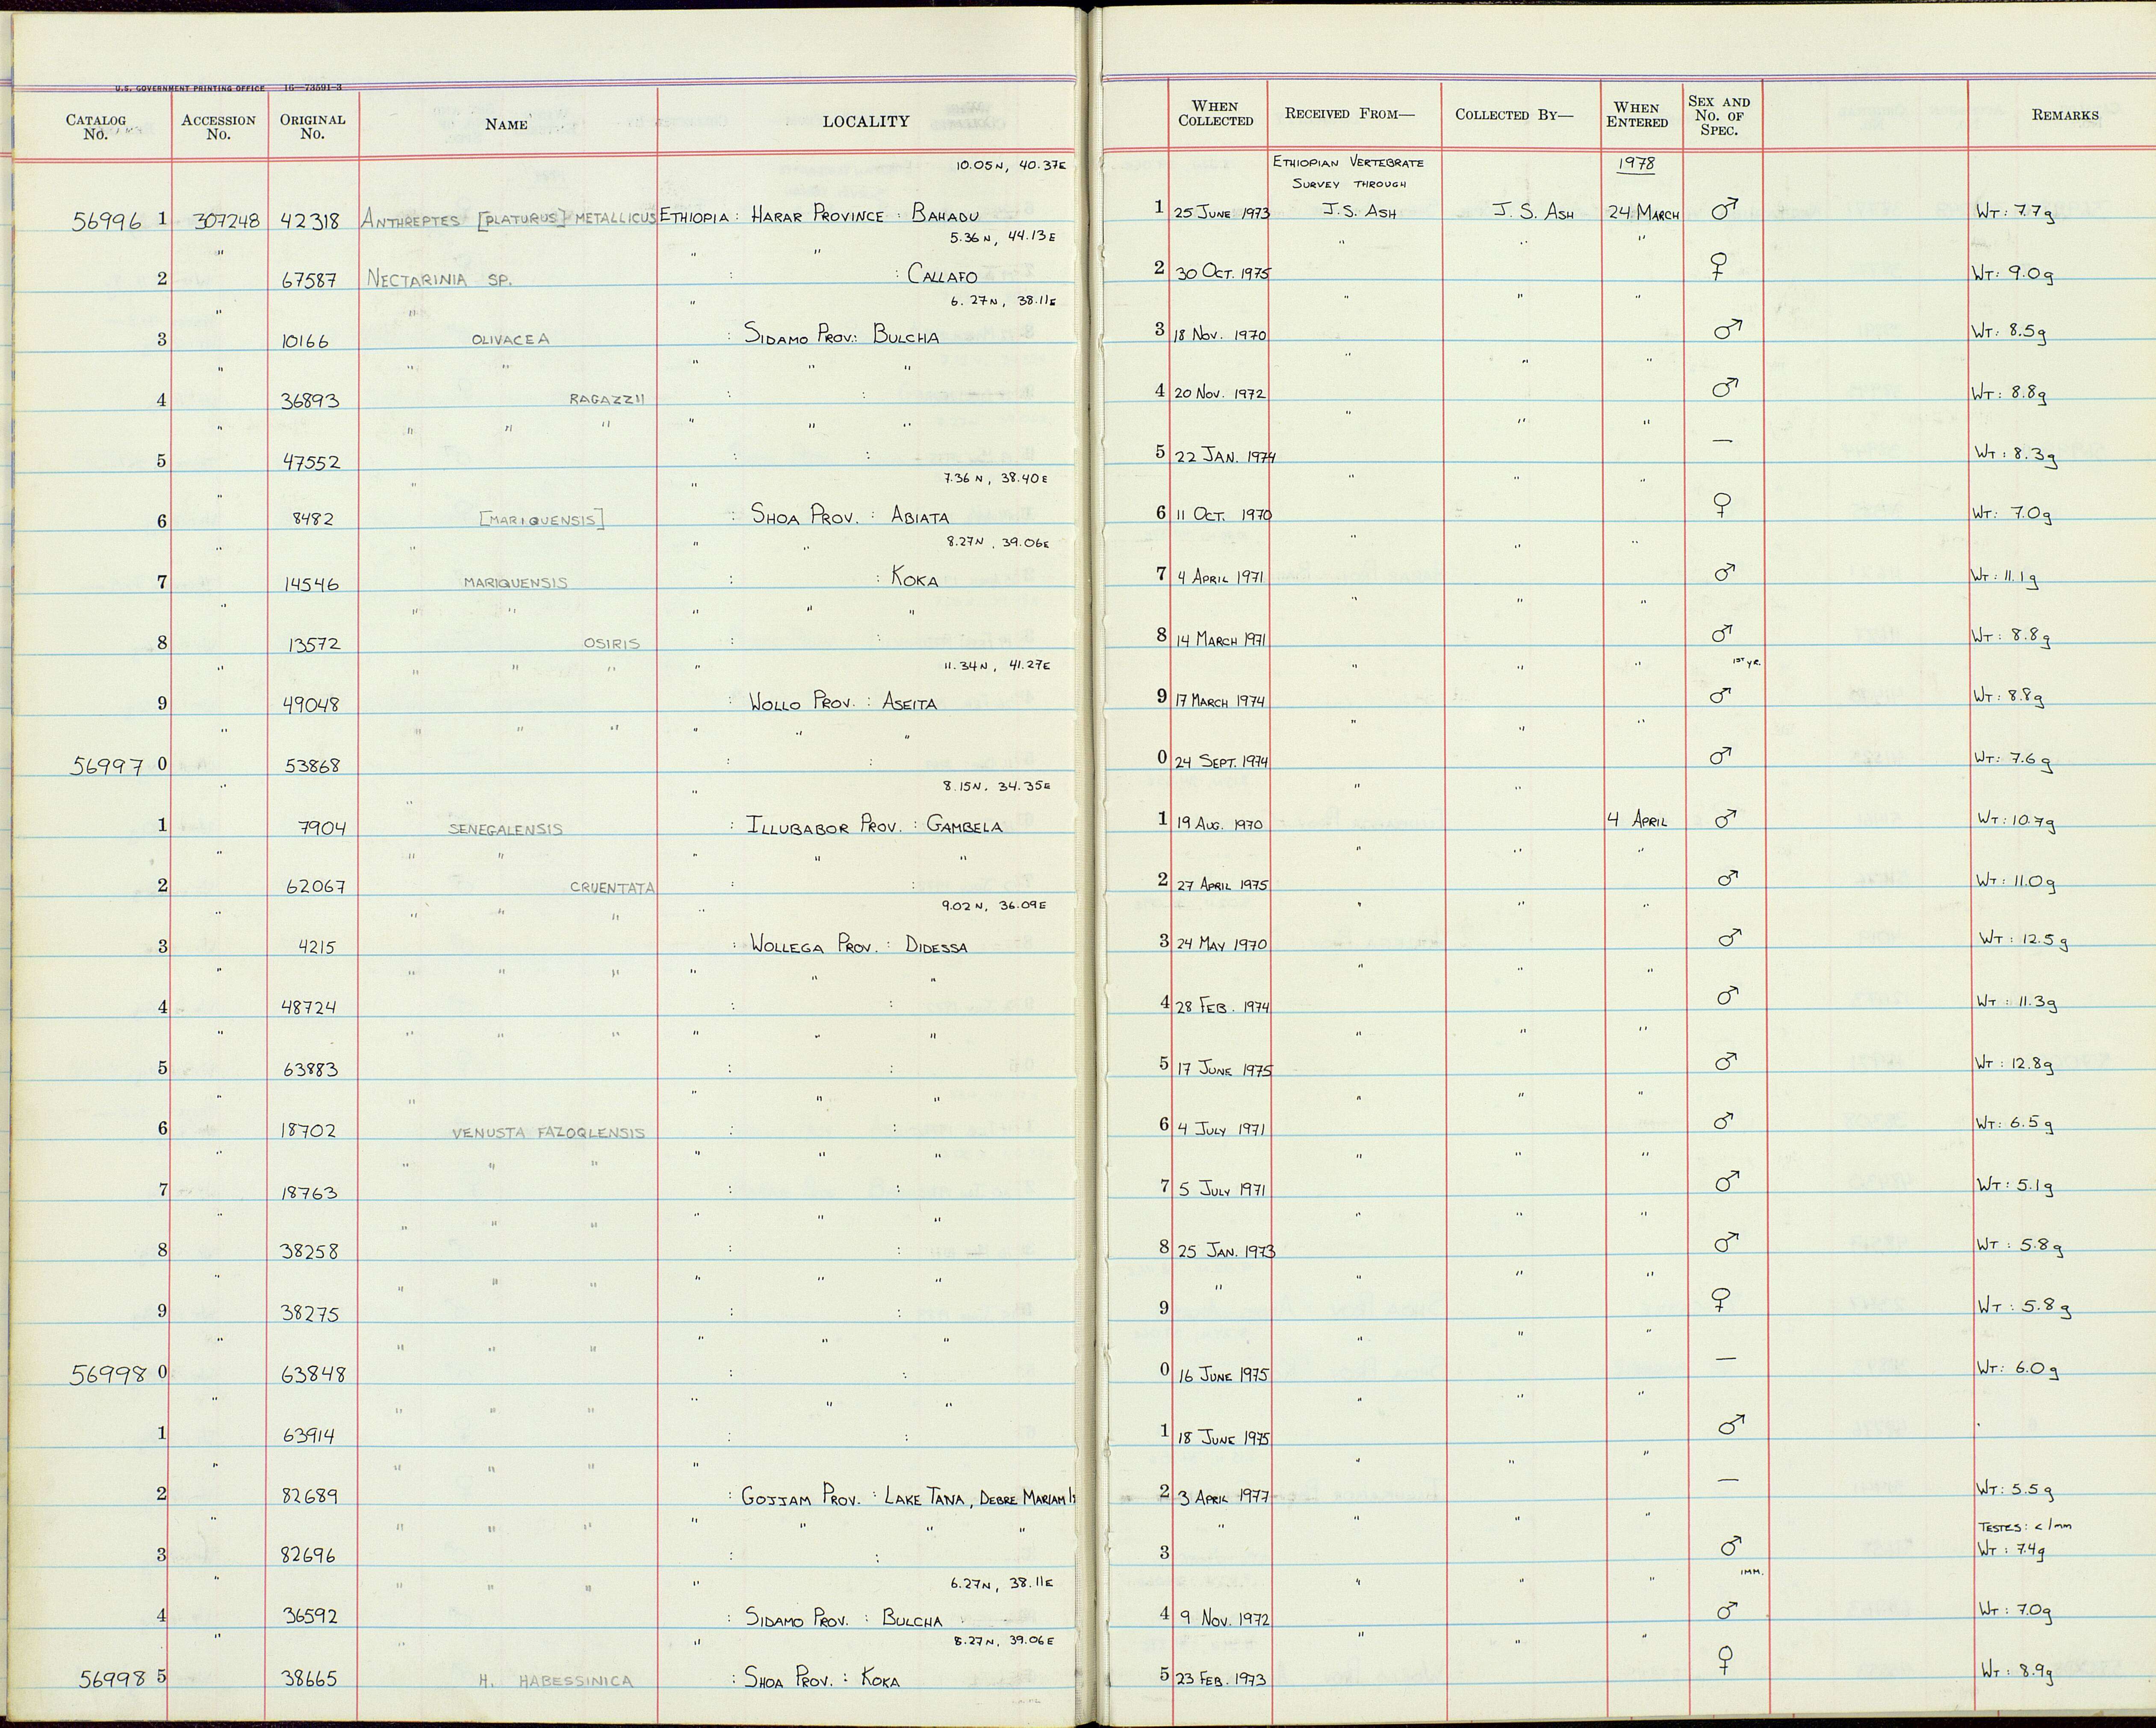 U.S. GOVERNMENT PRINTING OFFICE 16—73591-3
CATALOG No. ACCESSION No. ORIGINAL No. NAME LOCALITY WHEN COLLECTED RECEIVED FROM— COLLECTED BY— WHEN ENTERED SEX AND No. OF SPEC. REMARKS
10.05N, 40.37E ETHIOPIAN VERTEBRATE 1978
SURVEY THROUGH
56996 1 307248 42318 ANTHREPTES [PLATURUS] METALLICUS ETHIOPIA : HARAR PROVINCE : BAHADU 1 25 JUNE 1973 J.S. ASH J.S. ASH 24 MARCH ♂ WT: 7.7g
" 5.36N, 44.13E " " "
2 67587 NECTARINIA SP. " : " : CALLAFO 2 30 OCT. 1975 ♀ WT: 9.0g
" " " 6.27N, 38.11E " " "
3 10166 OLIVACEA : SIDAMO PROV: BULCHA 3 18 NOV. 1970 ♂ WT: 8.5g
" " " " " " " " "
4 36893 RAGAZZII : : 4 20 NOV. 1972 ♂ WT: 8.8g
" " " " " " " " " "
5 47552 : : 5 22 JAN. 1974 — WT: 8.3g
" " " 7.36N, 38.40E " " "
6 8482 [MARIQUENSIS] : SHOA PROV. : ABIATA 6 11 OCT. 1970 ♀ WT: 7.0g
" " " " 8.27N, 39.06E " " "
7 14546 MARIQUENSIS : : KOKA 7 4 APRIL 1971 ♂ WT: 11.1g
" " " " " " " " "
8 13572 OSIRIS : : 8 14 MARCH 1971 ♂ WT: 8.8g
" " " " " 11.34N, 41.27E " " " 1ST YR.
9 49048 : WOLLO PROV. : ASEITA 9 17 MARCH 1974 ♂ WT: 8.8g
" " " " " " " " " "
56997 0 53868 : : 0 24 SEPT. 1974 ♂ WT: 7.6g
" " " 8.15N. 34.35E " "
1 7904 SENEGALENSIS : ILLUBABOR PROV. : GAMBELA 1 19 AUG. 1970 4 APRIL ♂ WT: 10.7g
" " " " " " " " "
2 62067 CRUENTATA : : 2 27 APRIL 1975 ♂ WT: 11.0g
" " " " " 9.02N, 36.09E " " "
3 4215 : WOLLEGA PROV. : DIDESSA 3 24 MAY 1970 ♂ WT: 12.5g
" " " " " " " " " "
4 48724 : : 4 28 FEB. 1974 ♂ WT: 11.3g
" " " " " " " " " "
5 63883 : : 5 17 JUNE 1975 ♂ WT: 12.8g
" " " " " " " "
6 18702 VENUSTA FAZOQLENSIS : : 6 4 JULY 1971 ♂ WT: 6.5g
" " " " " " " " " "
7 18763 : : 7 5 JULY 1971 ♂ WT: 5.1g
" " " " " " " " " "
8 38258 : : 8 25 JAN. 1973 ♂ WT: 5.8g
" " " " " " " " " " "
9 38275 : : 9 ♀ WT: 5.8g
" " " " " " " " " "
56998 0 63848 : : 0 16 JUNE 1975 — WT: 6.0g
" " " " " " " " " "
1 63914 : : 1 18 JUNE 1975 ♂
" " " " " " " "
2 82689 : GOJJAM PROV. : LAKE TANA, DEBRE MARIAM Is 2 3 APRIL 1977 — WT: 5.5g
" " " " " " " " " " " " TESTES: <1mm
3 82696 : : 3 ♂ WT: 7.4g
" " " " " 6.27N, 38.11E " " " IMM.
4 36592 : SIDAMO PROV. : BULCHA 4 9 NOV. 1972 ♂ WT: 7.0g
" " " 8.27N, 39.06E " " "
56998 5 38665 H. HABESSINICA : SHOA PROV. : KOKA 5 23 FEB. 1973 ♀ WT: 8.9g